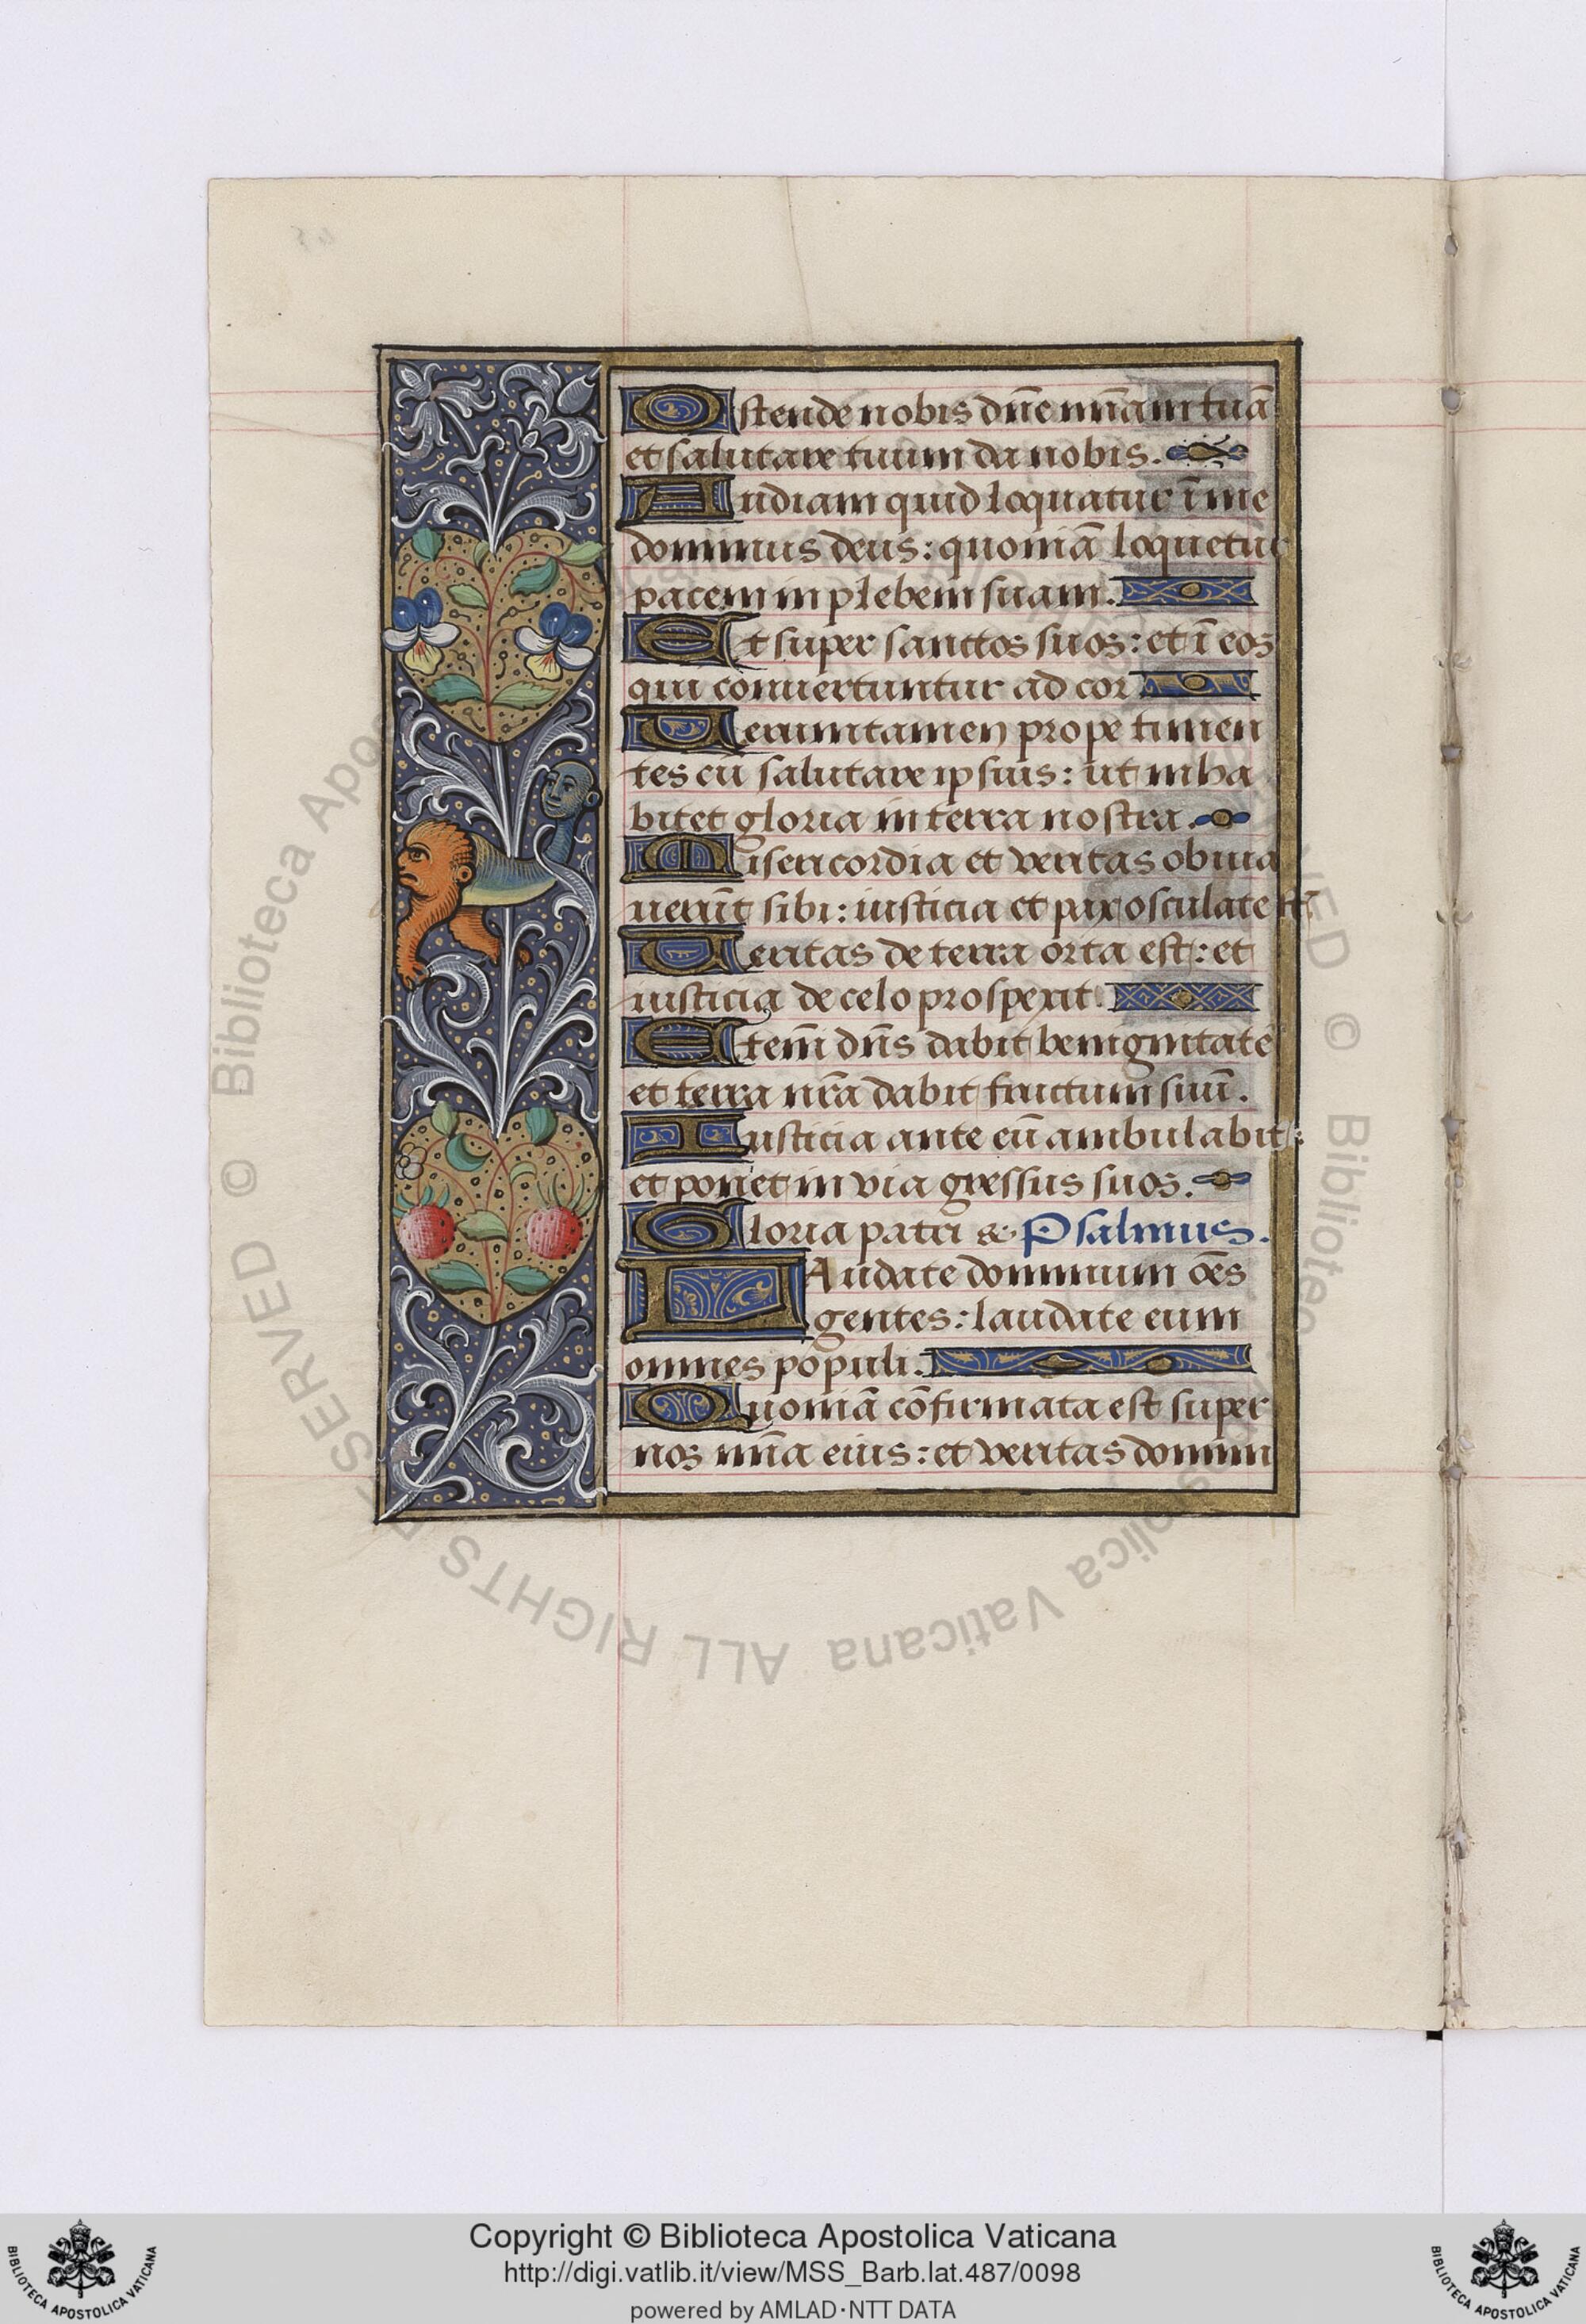 Ostende nobis dn̄e mīam tuā
et salutare tuum da nobis.
Audiam quid loquatur ī me
dominus deus: quoniā loquetur
pacem in plebem suam.
Et super sanctos suos: et ī eos
qui conuertuntur ad cor
Ueruntamen prope timen
tes eū salutare ipsius: ut inha
bitet gloria in terra nostra.
Misericordia et veritas obuia
uerūt sibi: iusticia et pax osculate st̄
Ueritas de terra orta est: et
iusticia de celo prospexit.
Etenī dn̄s dabit benignitatē
et terra nr̄a dabit fructum suū.
Iusticia ante eū ambulabit:
et ponet in via gressus suos.
Gloria patri &. Psalmus.
LAudate dominum oēs
gentes: laudate eum
omnes populi.
Quoniā cōfirmata est super
nos mīa eius: et veritas domini
© Biblioteca Apostolica Vaticana ALL RIGHTS RESERVED
Copyright © Biblioteca Apostolica Vaticana
http://digi.vatlib.it/view/MSS_Barb.lat.487/0098
powered by AMLAD·NTT DATA
BIBLIOTECA APOSTOLICA VATICANA
BIBLIOTECA APOSTOLICA VATICANA